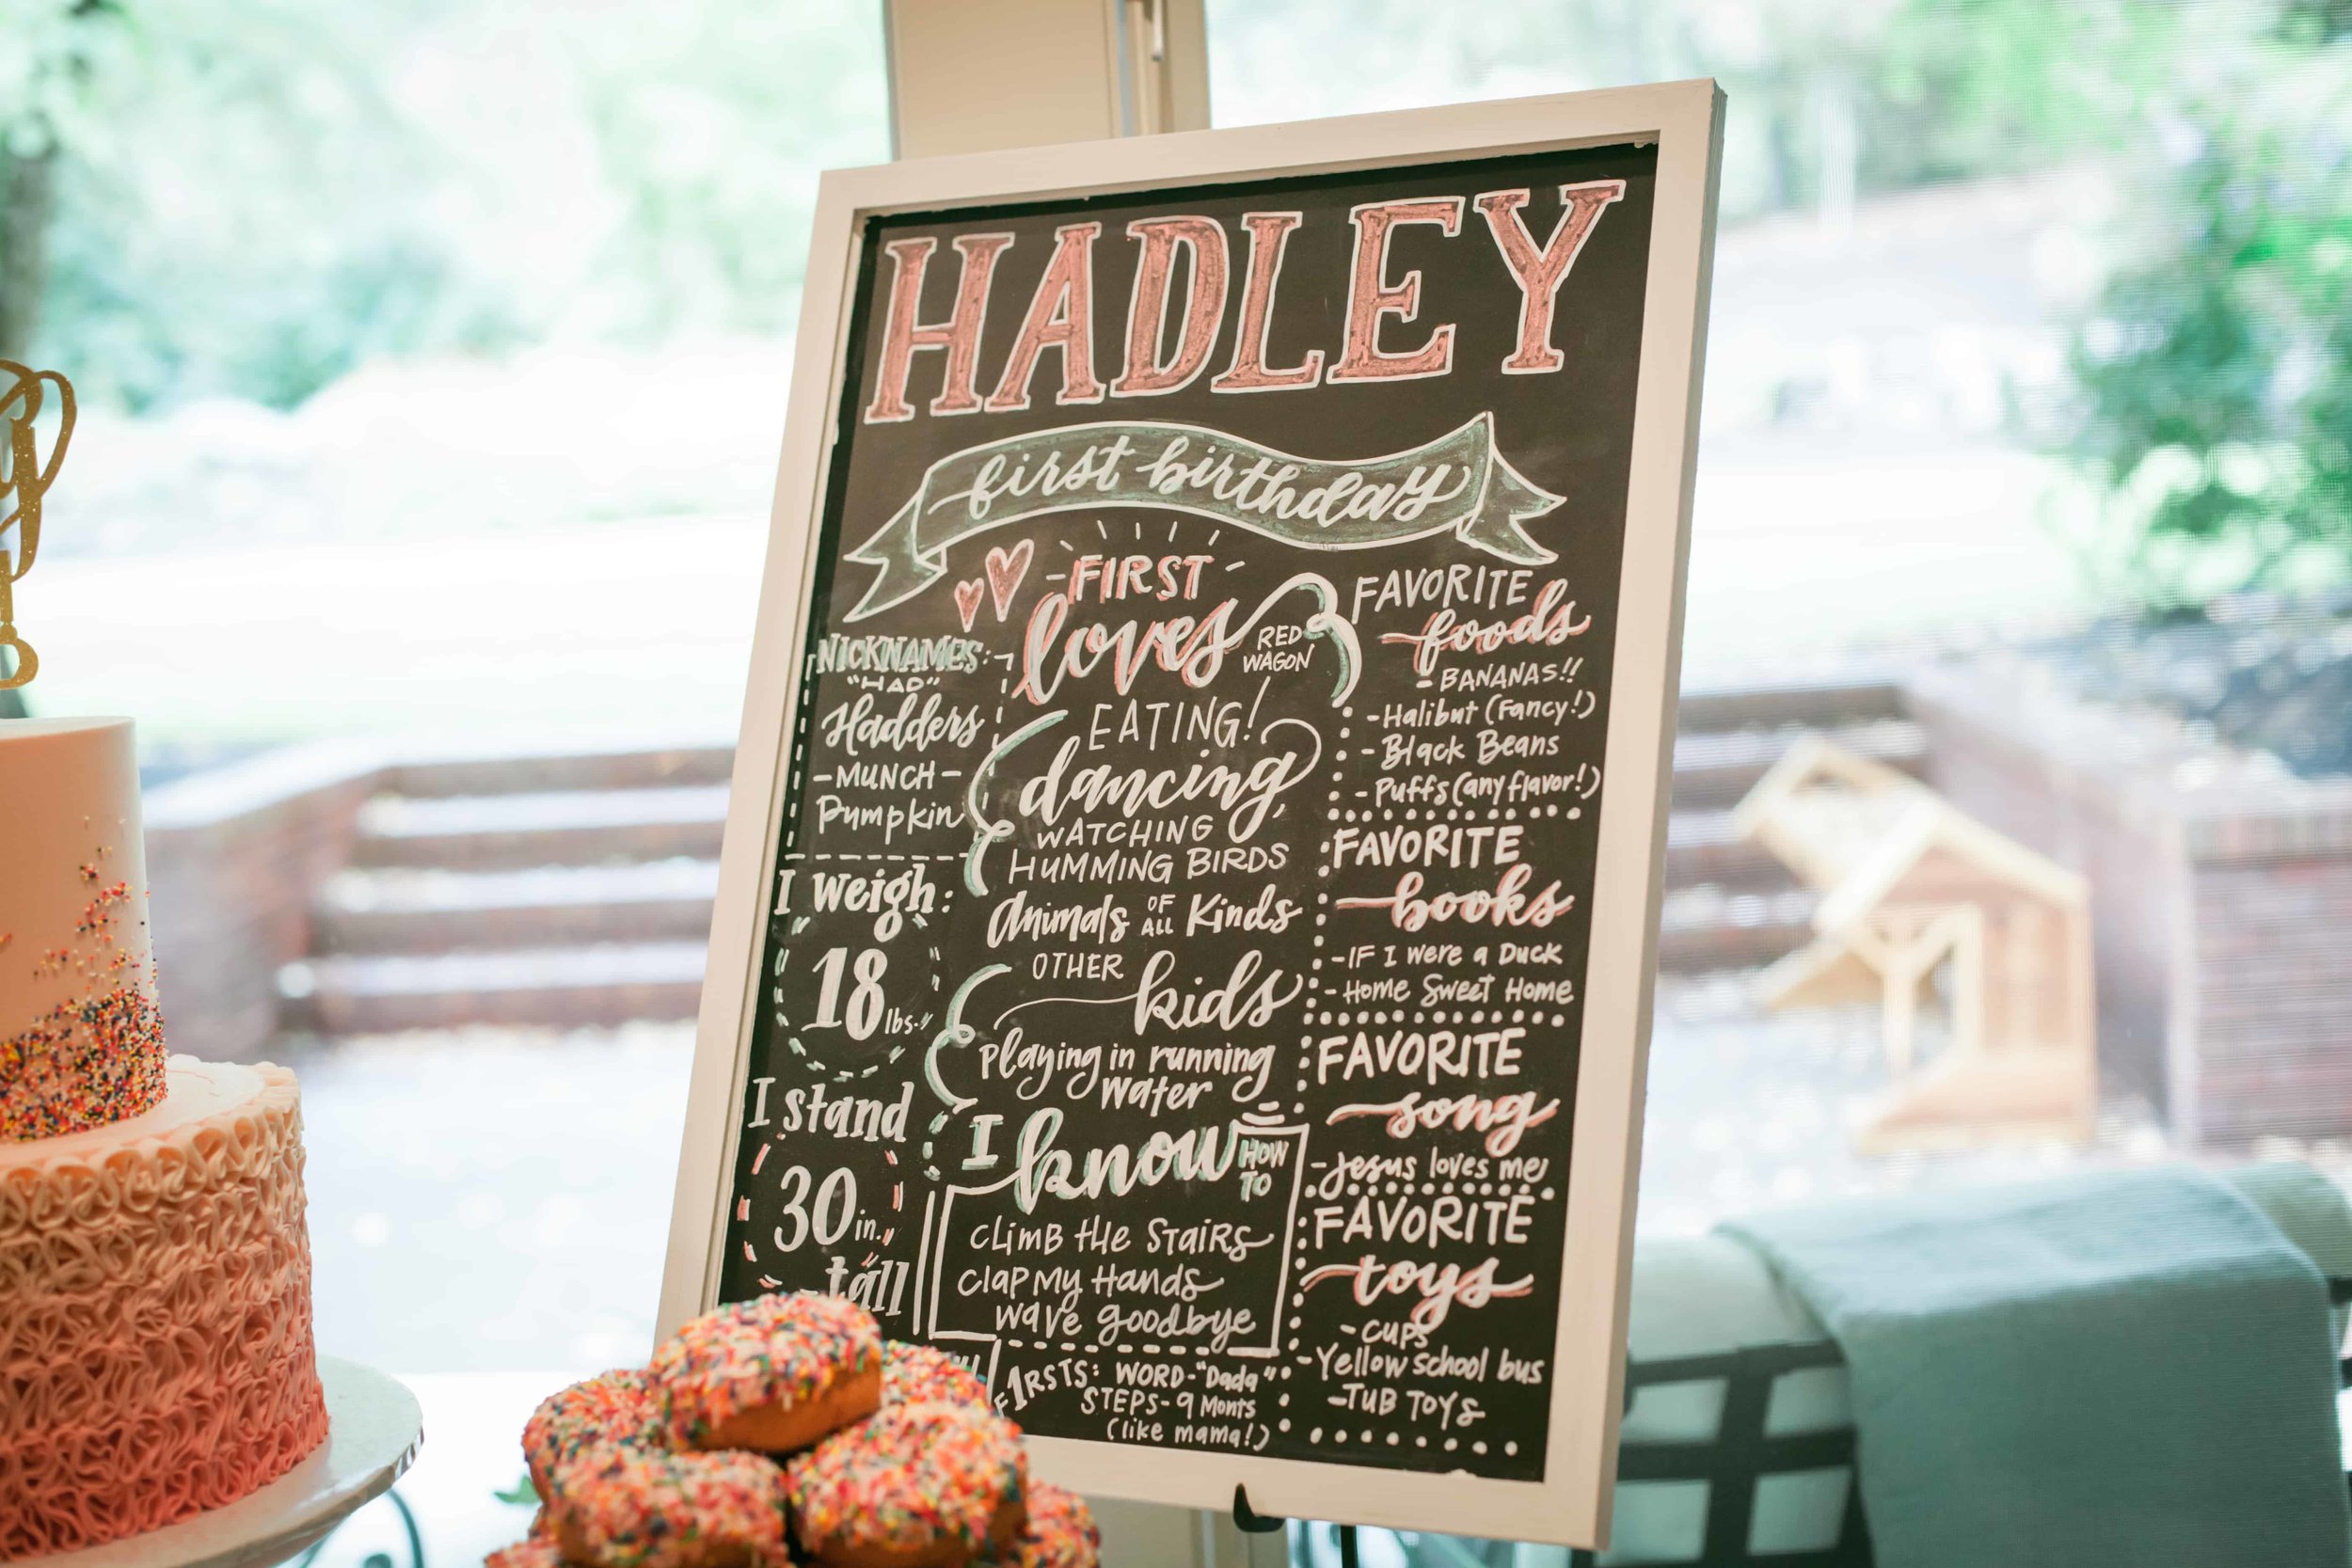 HADLEY
first birthday
NICKNAMES:
"HAD"
Hadders
-MUNCH-
Pumpkin
I weigh:
18 lbs.
I stand
30 in.
tall
-FIRST-
loves
RED
WAGON
EATING!
dancing,
WATCHING
HUMMING BIRDS
Animals OF ALL Kinds
OTHER
kids
Playing in running
water
I know HOW TO
CLIMB tHe StaiRS
Clap My Hands
wave goodbye
FIRSTS: WORD-"Dada"
STEPS-9 Monts
(like mama!)
FAVORITE
foods
- BANANAS!!
- Halibut (Fancy!)
- Black Beans
- Puffs (any flavor!)
FAVORITE
books
- IF I were a Duck
- Home Sweet Home
FAVORITE
song
- Jesus loves me
FAVORITE
toys
- CUPS
- Yellow School bus
- TUB TOYS